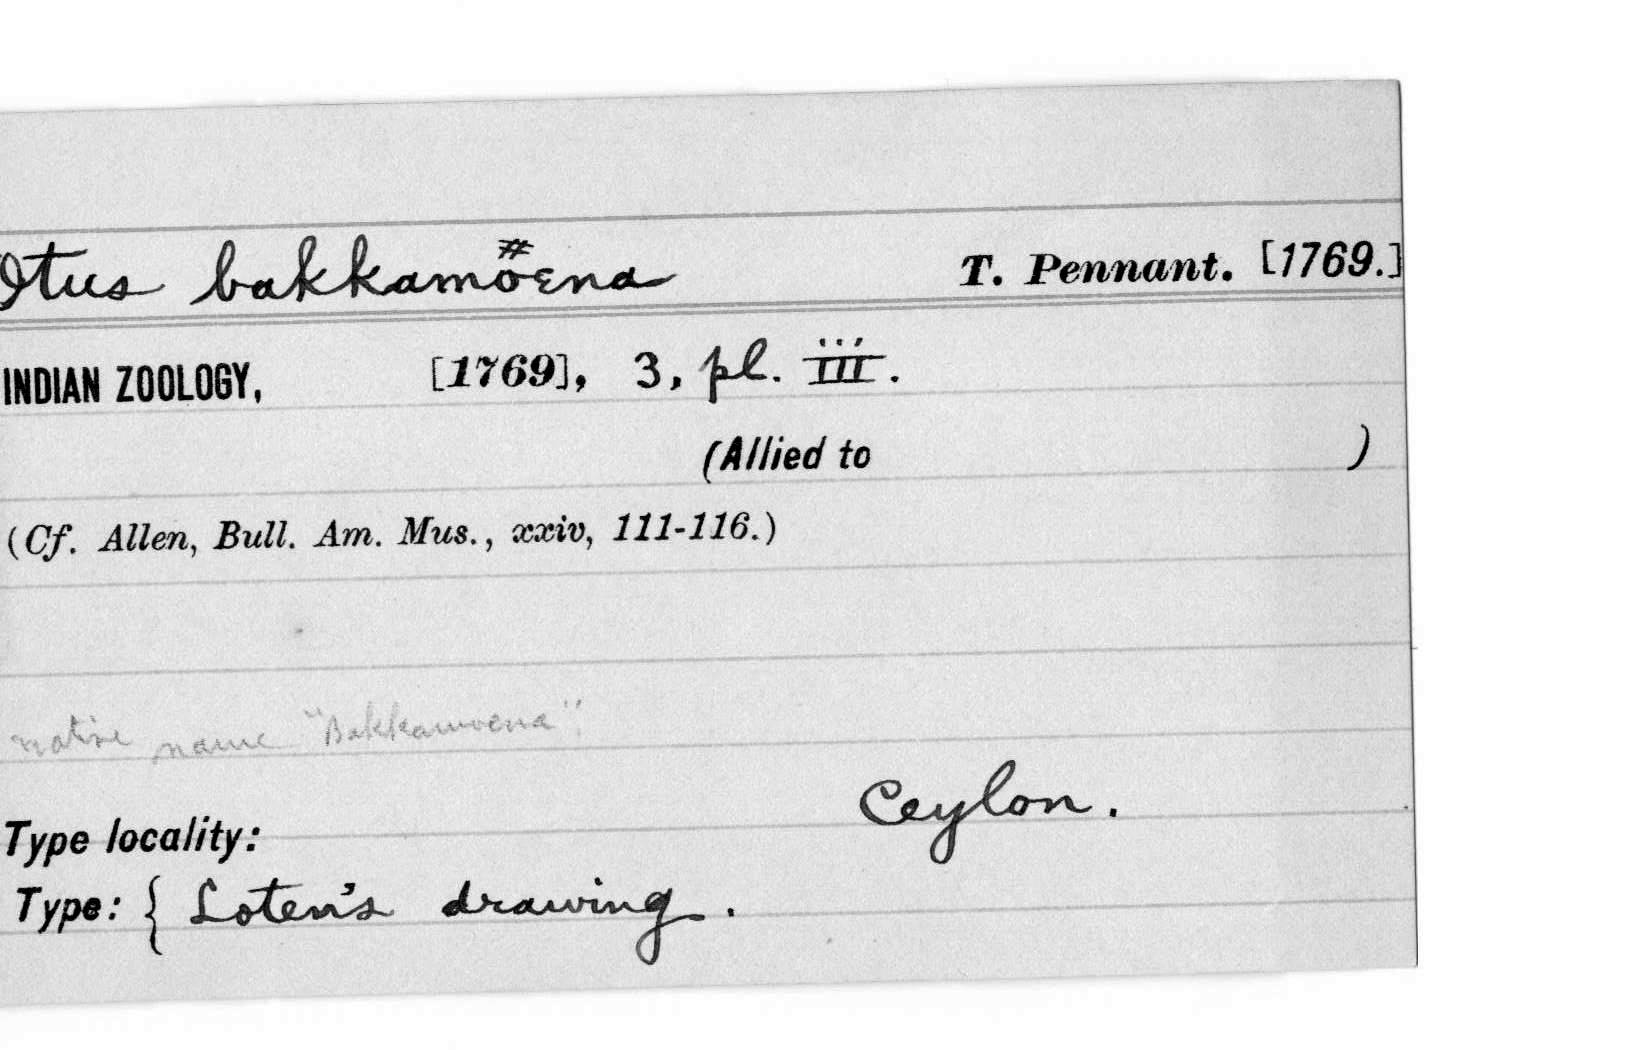 Otus bakkamöena T. Pennant. [1769.]
INDIAN ZOOLOGY, [1769], 3, pl. III.
(Allied to )
(Cf. Allen, Bull. Am. Mus., xxiv, 111-116.)
native name "Bakkamoena".
Ceylon.
Type locality:
Type: { Loten's drawing.